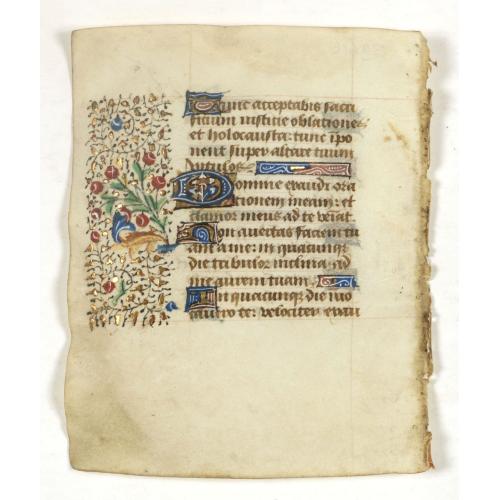 Tunc acceptabis sacri
ficium iusticie oblationes
et holocausta: tunc īpo
nent super altare tuum
vitulos.
Domine exaudi ora
tionem meam: et
clamor meus ad te veniat.
Non avertas faciem tu
am a me: in quacunq̨
die tribulor inclina ad
me aurem tuam.
In quacunq̨ die invo
cavero te: velociter exau